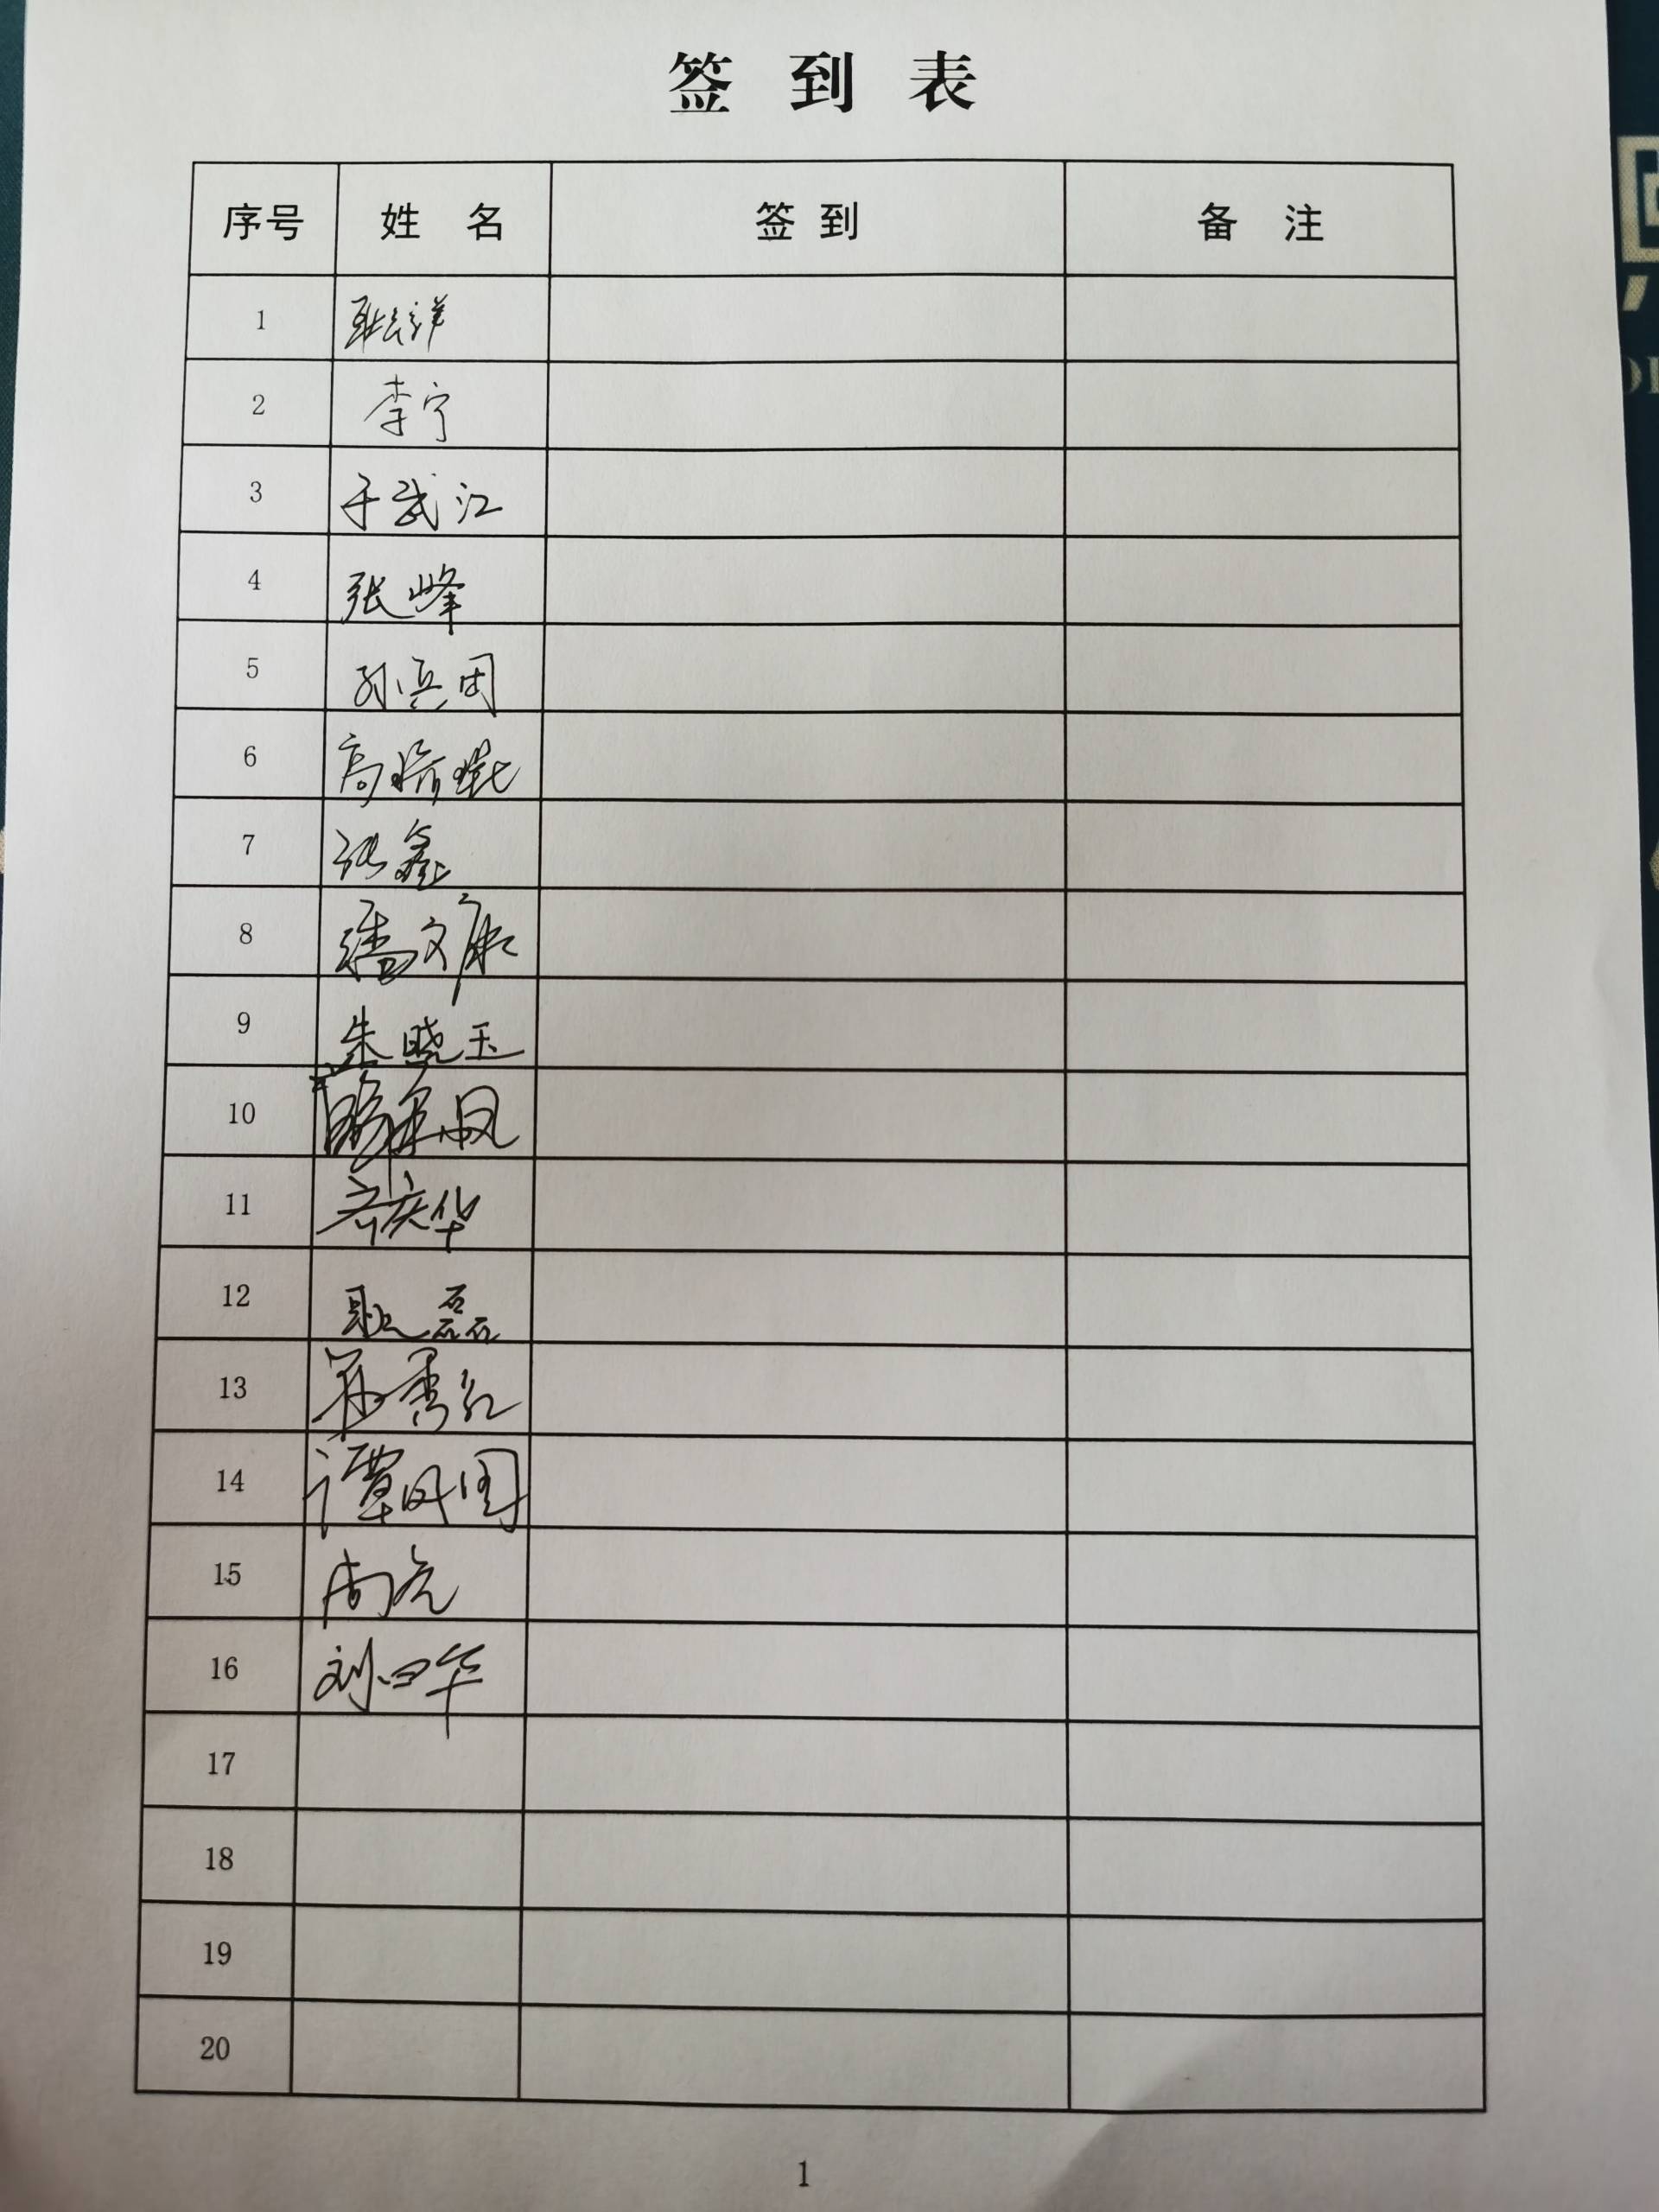 签 到 表
序号 姓 名 签 到 备 注
1
2 李宁
3 于武江
4 张峰
5 孙兵团
6 高
7 张鑫
8 潘文康
9 朱晓玉
10 凤
11 齐庆华
12 耿磊
13 孙秀红
14 谭风图
15 尚亮
16 刘四华
17
18
19
20
1